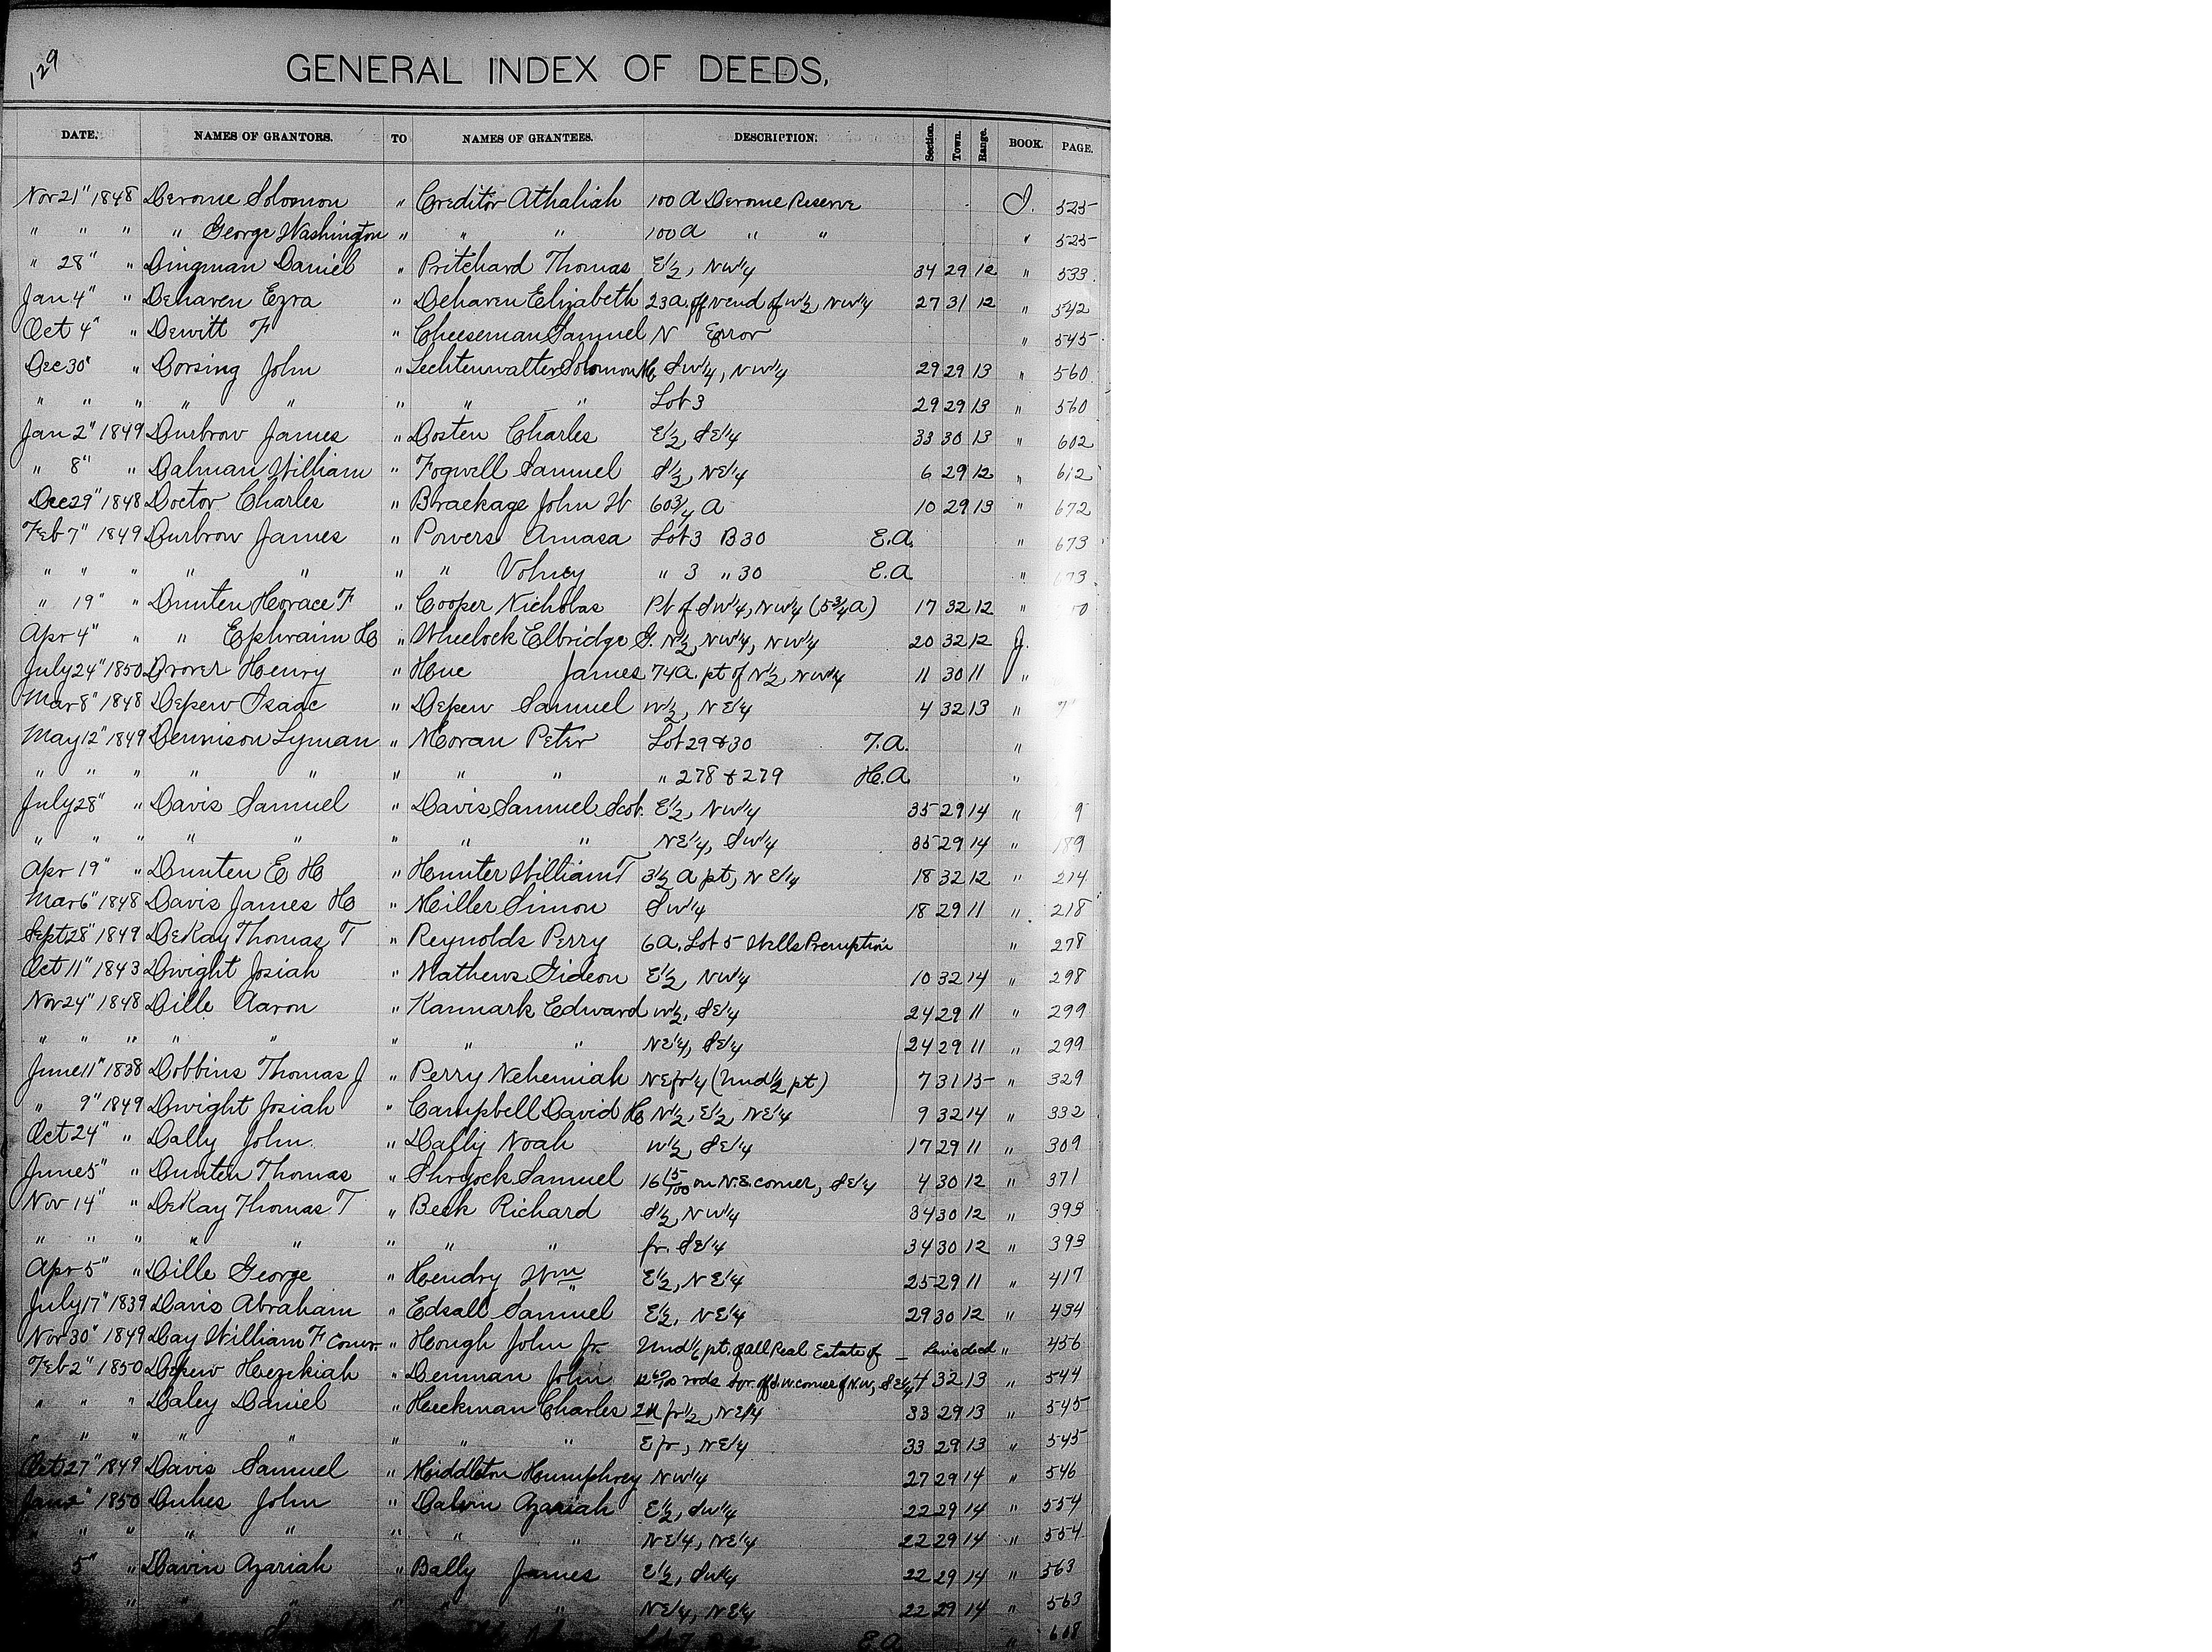 129
GENERAL INDEX OF DEEDS,
DATE. NAMES OF GRANTORS. TO NAMES OF GRANTEES. DESCRIPTION. Section. Town. Range. BOOK. PAGE.
Nov 21" 1848 Derome Solomon " Creditor Athaliah 100 A Derome Reserve I. 525
" " " " George Washington " " " 100 A " " " 525
" 28" " Dingman Daniel " Pritchard Thomas E1/2, NW1/4 34 29 12 " 533
Jan 4" " Dehaven Ezra " Dehaven Elizabeth 23a. off N end of W1/2, NW1/4 27 31 12 " 542
Oct 4" " Dewitt F " Cheeseman Samuel N Error " 545
Dec 30" " Dorsing John " Lechtenwalter Solomon SW1/4, NW1/4 29 29 13 " 560
" " " " " " " " Lot 3 29 29 13 " 560
Jan 2" 1849 Durbrow James " Dosten Charles E1/2, SE1/4 33 30 13 " 602
" 8" " Dalman William " Fogwell Samuel S1/2, NE1/4 6 29 12 " 612
Dec 29" 1848 Doctor Charles " Brackage John W 60 3/4 A 10 29 13 " 672
Feb 7" 1849 Durbrow James " Powers Amasa Lot 3 B 30 E.A. " 673
" " " " " " " Volney " 3 " 30 E.A " 673
" 19" " Dunten Horace F " Cooper Nicholas Pt of SW1/4, NW1/4 (5 3/4 A) 17 32 12 " 0
Apr 4" " " Ephraim H " Wheelock Elbridge G. N1/2, NW1/4, NW1/4 20 32 12 J.
July 24" 1850 Drover Henry " Hue James 74a. pt of N1/2, NW1/4 11 30 11 "
Mar 8" 1848 Depew Isaac " Depew Samuel W1/2, NE1/4 4 32 13 "
May 12" 1849 Dennison Lyman " Moran Peter Lot 29 & 30 T.A. "
" " " " " " " " " 278 & 279 H.A. "
July 28" " Davis Samuel " Davis Samuel Scot. E1/2, NW1/4 35 29 14 " 9
" " " " " " " " NE1/4, SW1/4 35 29 14 " 189
Apr 19" " Dunten E H " Hunter William T 3 1/2 A pt, NE1/4 18 32 12 " 214
Mar 6" 1848 Davis James H " Miller Simon SW1/4 18 29 11 " 218
Sept 28" 1849 DeKay Thomas T " Reynolds Perry 6a. Lot 5 Wells Premption " 278
Oct 11" 1843 Dwight Josiah " Mathews Gideon E1/2, NW1/4 10 32 14 " 298
Nov 24" 1848 Dille Aaron " Kanmark Edward W1/2, SE1/4 24 29 11 " 299
" " " " " " " " NE1/4, SE1/4 24 29 11 " 299
June 11" 1838 Dobbins Thomas J " Perry Nehemiah NE fr 1/4 (Und 1/2 pt) 7 31 15 " 329
" 9" 1849 Dwight Josiah " Campbell David H N1/2, E1/2, NE1/4 9 32 14 " 332
Oct 24" " Dally John " Dally Noah W1/2, SE1/4 17 29 11 " 309
June 5" " Dunten Thomas " Shryock Samuel 16 15/100 on N.E corner, SE1/4 4 30 12 " 371
Nov 14" " DeKay Thomas T " Beck Richard S1/2, NW1/4 34 30 12 " 393
" " " " " " " " fr. SE1/4 34 30 12 " 393
Apr 5" " Dille George " Hendry Wm E1/2, NE1/4 25 29 11 " 417
July 17" 1839 Davis Abraham " Edsall Samuel E1/2, NE1/4 29 30 12 " 434
Nov 30" 1849 Day William F Comr. " Hough John Jr. Und 1/6 pt. of all Real Estate of " 456
Feb 2" 1850 Depew Hezekiah " Denman John rods sqr. off S.W. corner of N.W, SE1/4 4 32 13 " 544
" " " Daley Daniel " Heckman Charles fr 1/2, NE1/4 33 29 13 " 545
" " " " " " " " E fr, NE1/4 33 29 13 " 545
Oct 27" 1849 Davis Samuel " Middleton Humphrey NW1/4 27 29 14 " 546
1850 Dukes John " Dalvin Azariah E1/2, SW1/4 22 29 14 " 554
" " " " " " " " NE1/4, NE1/4 22 29 14 " 554
5" " Davin Azariah " Bally James E1/2, SW1/4 22 29 14 " 563
" " " " " " NE1/4, NE1/4 22 29 14 " 563
E.A. " 608